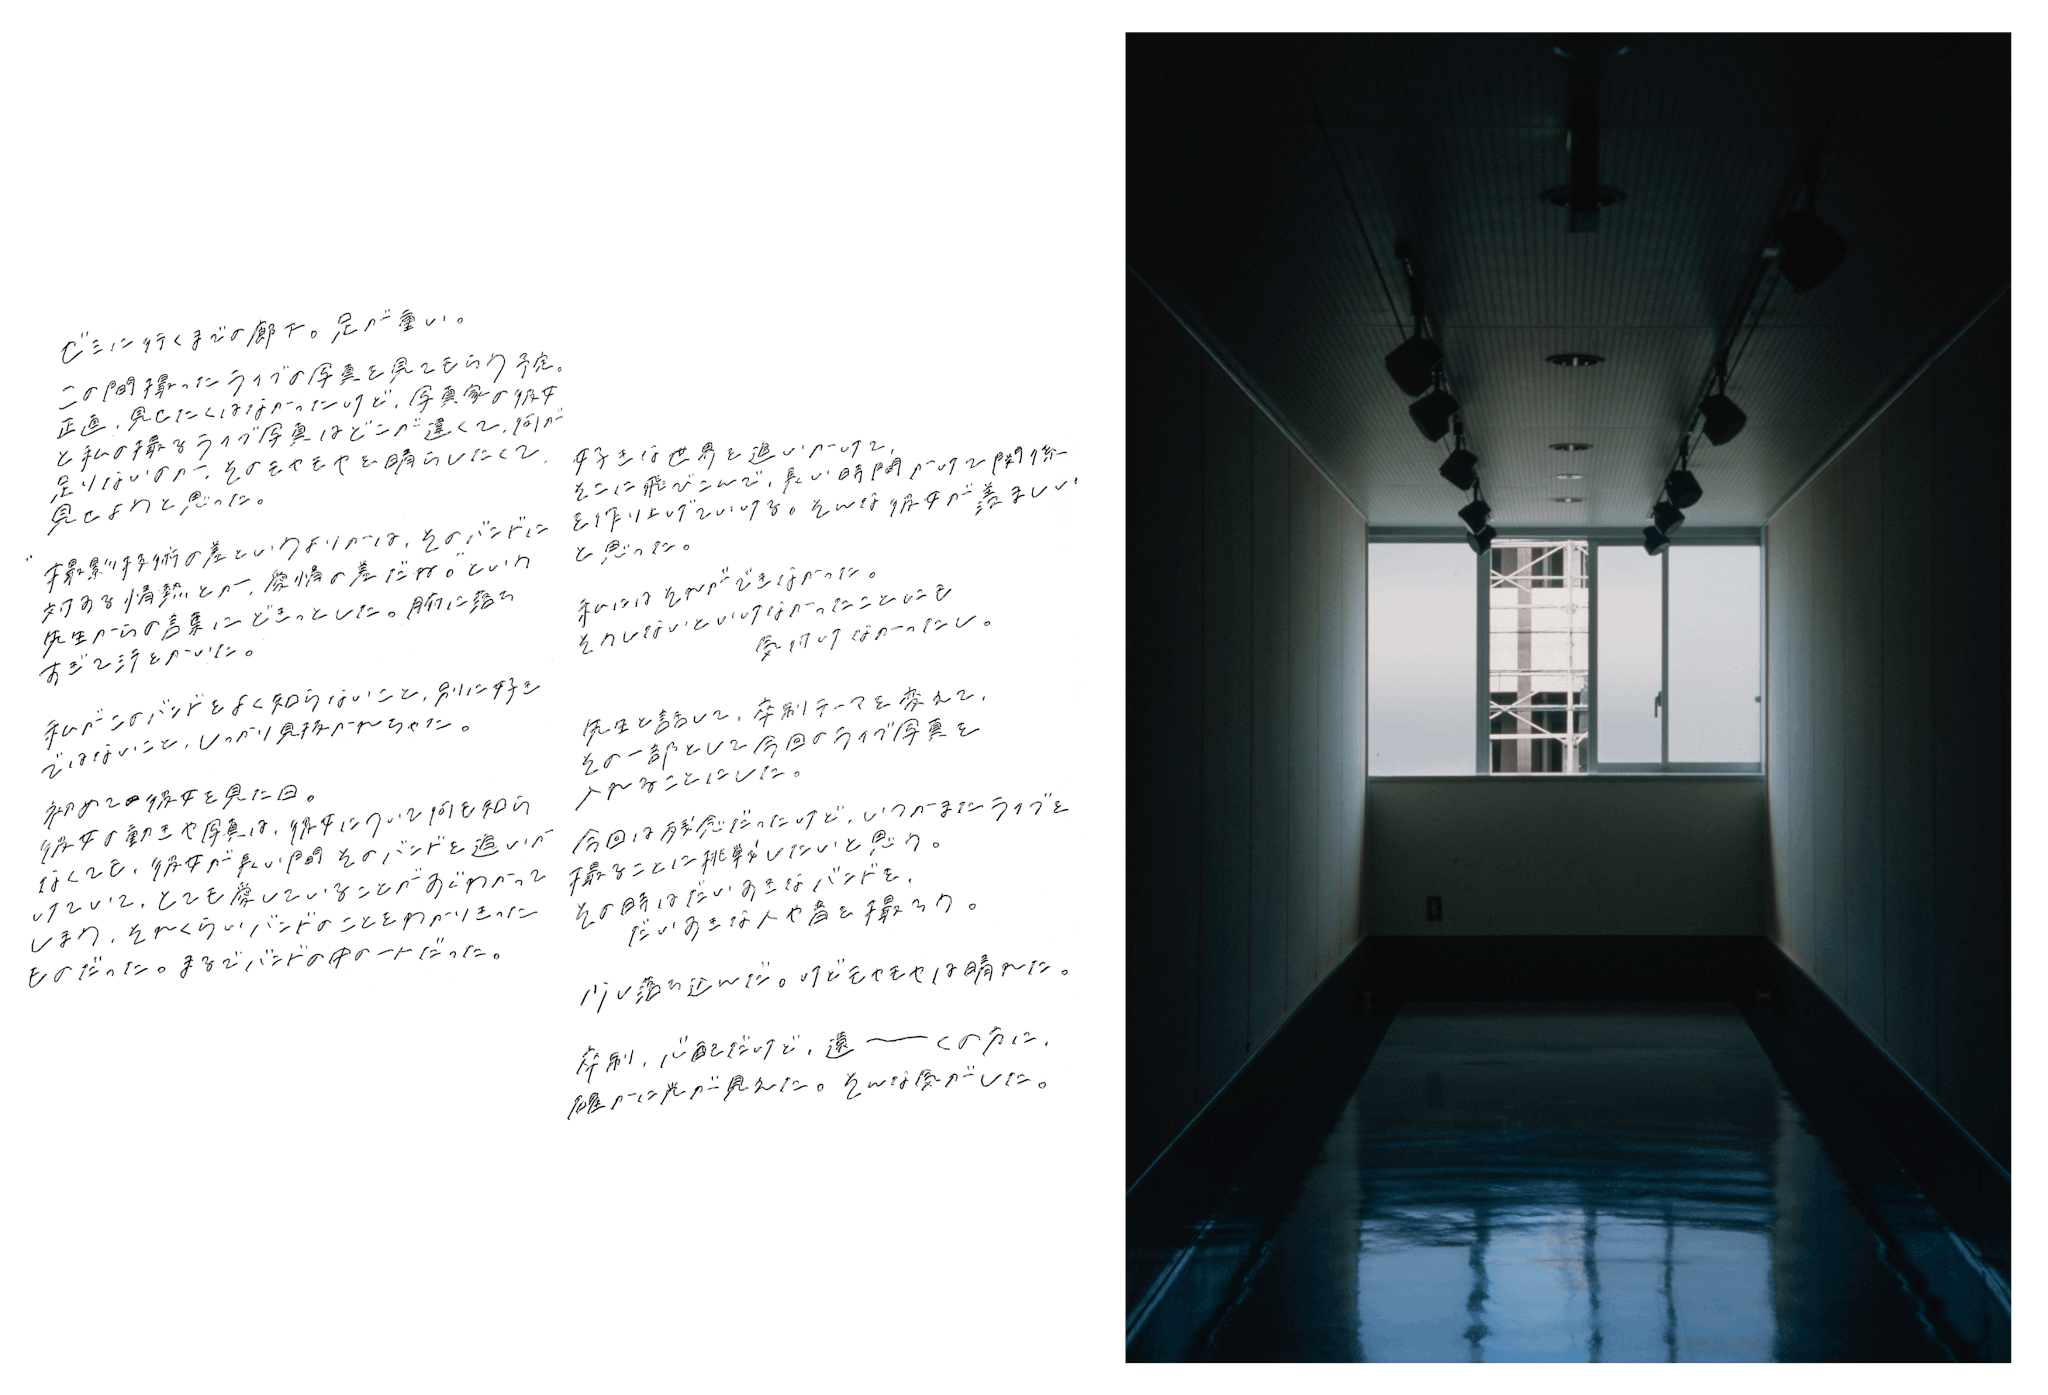 ゼミに行くまでの廊下。足が重い。
この間撮ったライブの写真を見てもらう予定。
正直、見せたくはなかったけど、写真家の彼女
と私の撮るライブ写真はどこが違くて、何が
足りないのか、そのモヤモヤを晴らしたくて、
見せようと思った。
"撮影技術の差というよりかは、そのバンドに
対する情熱とか、愛情の差だね。という
先生からの言葉にどきっとした。腑に落ち
すぎて汗をかいた。
私がこのバンドをよく知らないこと、別に好き
ではないこと、しっかり見抜かれちゃた。
初めて彼女を見た日。
彼女の動きや写真は、彼女について何も知ら
なくても、彼女が長い間そのバンドを追いか
けていて、とても愛していることがすぐわかって
しまう、それくらいバンドのことをわかりきった
ものだった。まるでバンドの中の一人だった。
好きな世界を追いかけて、
そこに飛びこんで、長い時間かけて関係
を作り上げていける。そんな彼女が羨ましい
と思った。
私にはそれができなかった。
そうしないといけなかったことにも
気付けなかったし。
先生と話して、卒制テーマを変えて、
その一部として今回のライブ写真を
入れることにした。
今回は残念だったけど、いつかまたライブを
撮ることに挑戦したいと思う。
その時はだいすきなバンドを、
だいすきな人や音を撮ろう。
少し落ち込んだ。けどモヤモヤは晴れた。
卒制、心配だけど、遠──くの方に、
確かに光が見えた。そんな気がした。